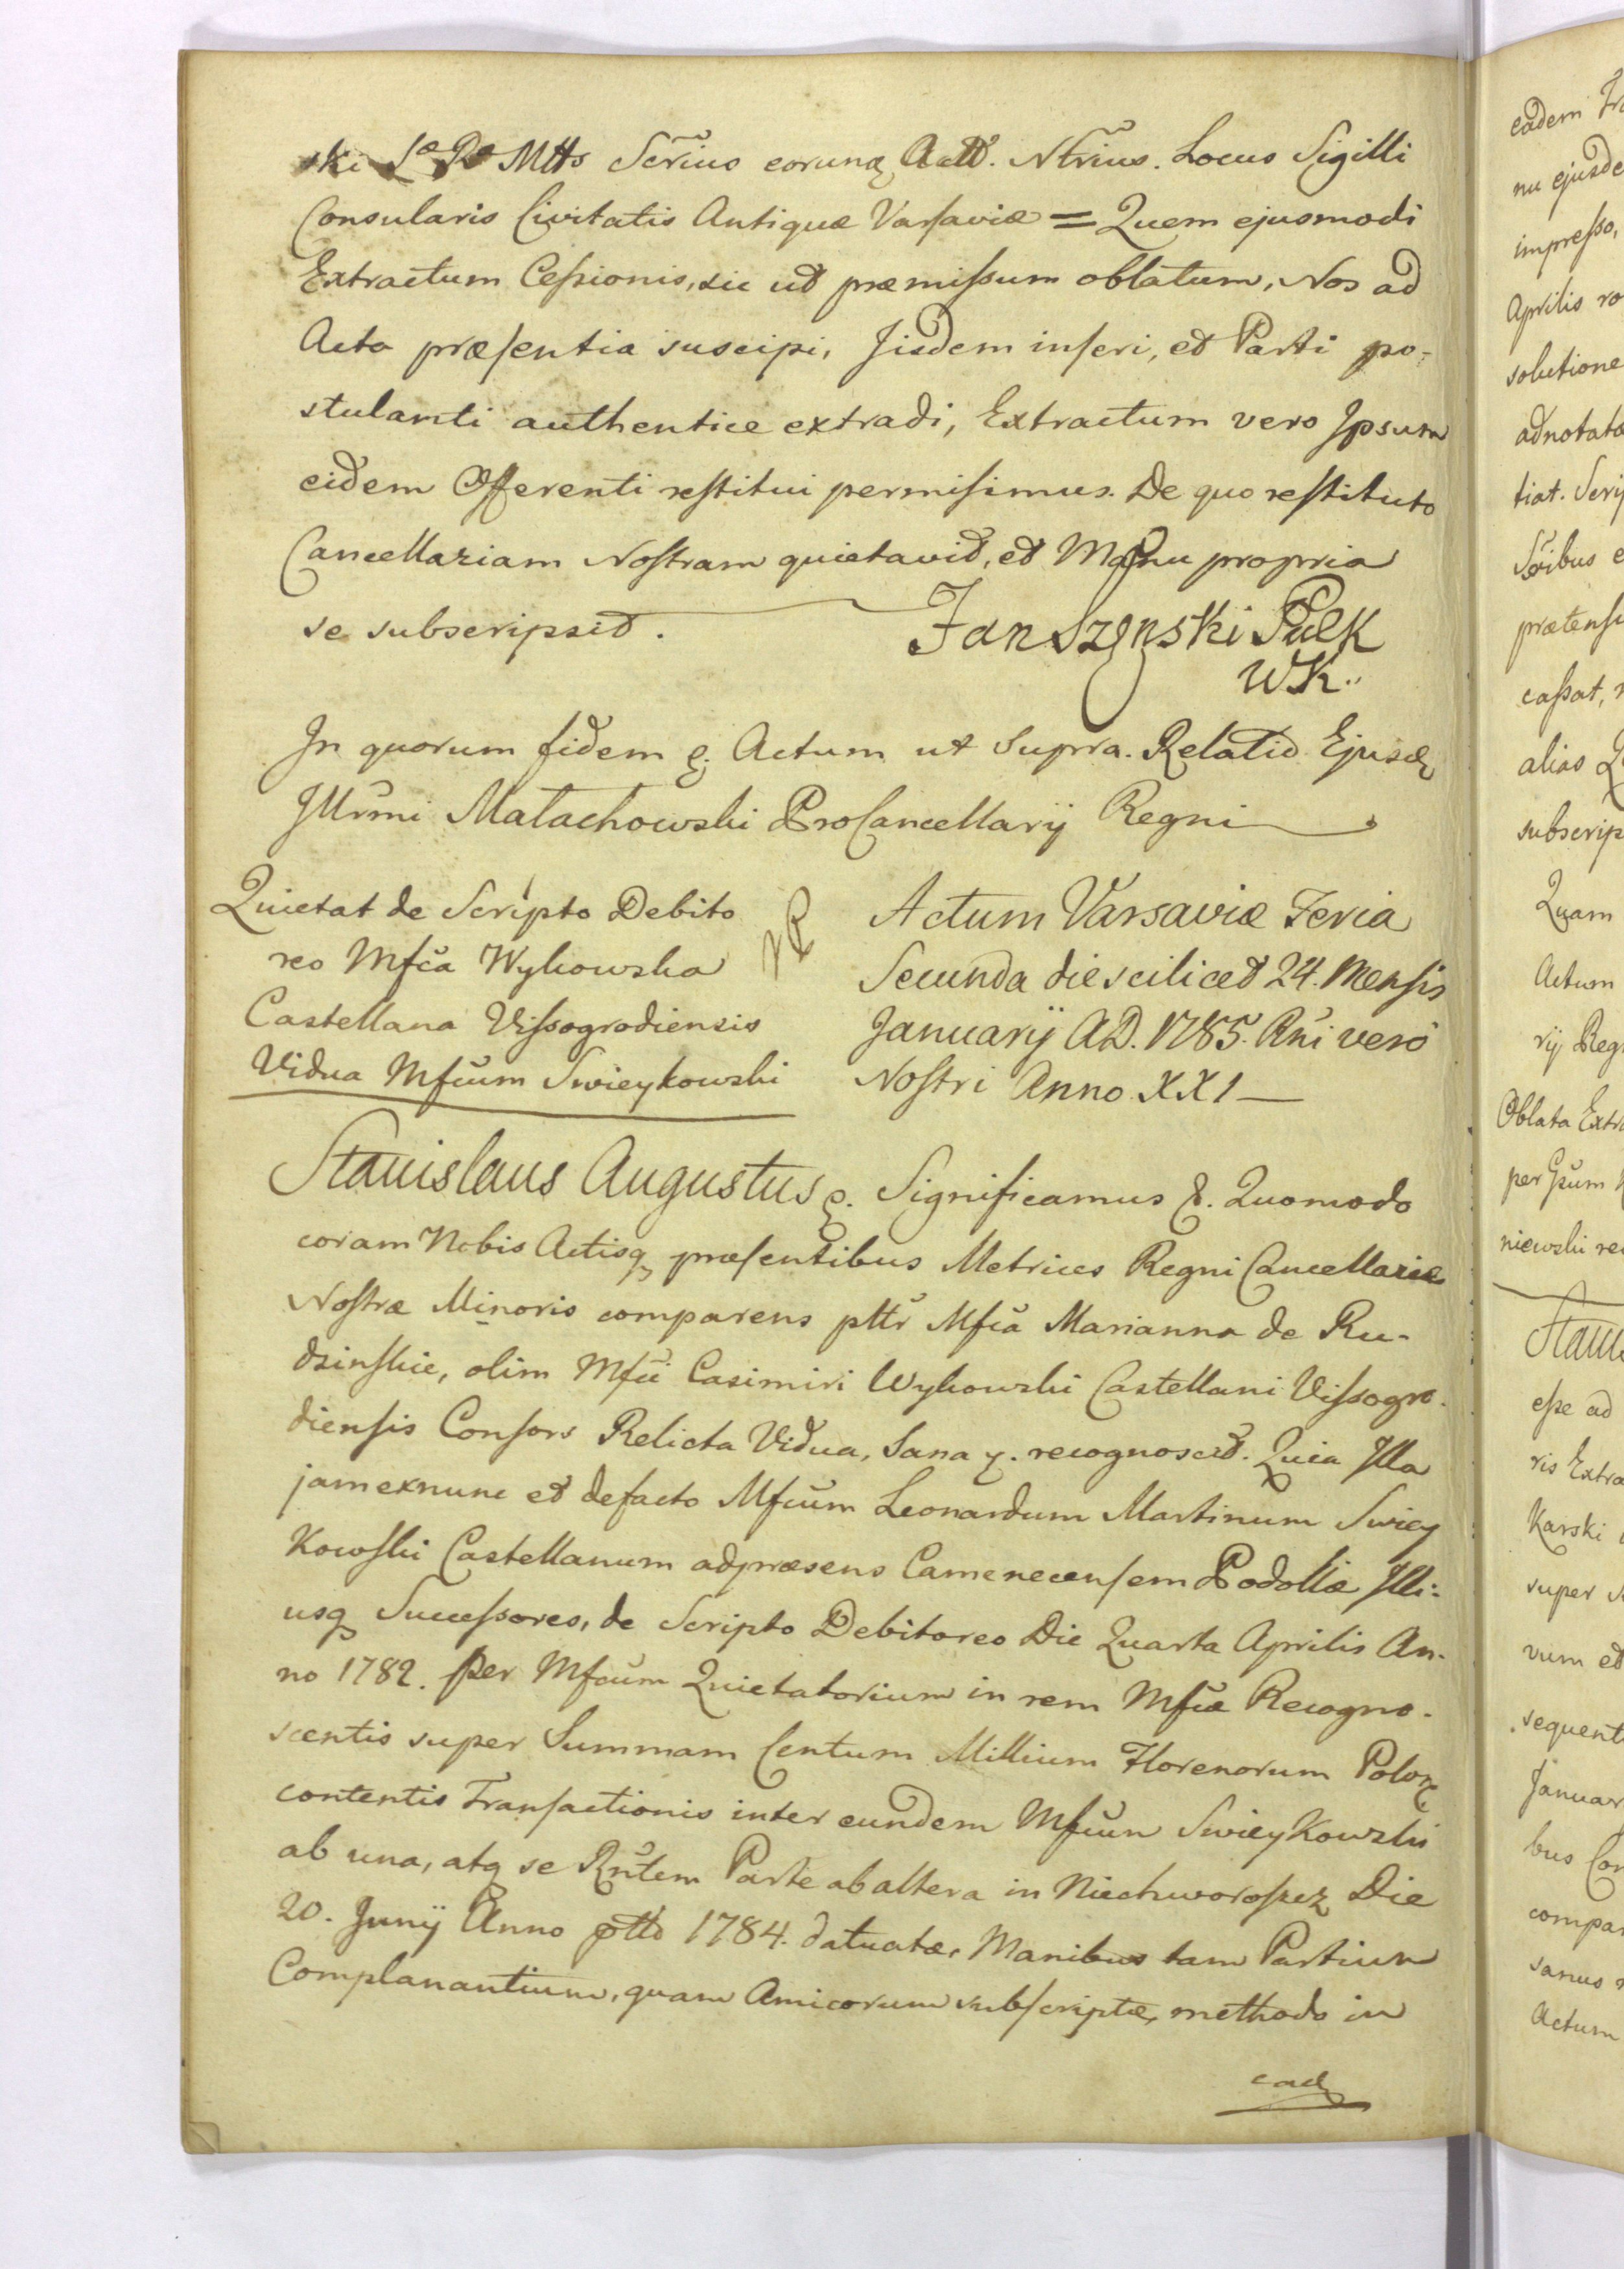 ski S<sup>ae</sup> R<sup>ae</sup> Mtts Scrius eorunq Actt. Ntrius. Locus Sigilli
Consularis Civitatis Antiquæ Varsaviæ = Quem ejusmodi
Extractum Cessionis, sic ut præmissum oblatum, Nos ad
Acta præsentia suscipi, Jisdem inseri, et Parti po-
stulanti authentice extradi, Extractum vero Jpsum
eidem Offerenti restitui permisimus. De quo restituto
Cancellariam Nostram quietavit, et Manu propria
se subscripsit.
Jan Szynski Pulk
WK.
Jn quorum fidem &. Actum ut supra. Relatio Ejusd
Jllrmi Małachowski ProCancellarij Regni
Quietat de Scripto Debito
reo Mfca Wykowska
Castellana Vissogrodiensis
Vidua Mfcum Swieykowski
Actum Varsaviæ Feria
Secunda die scilicet 24. Mensis
Januarij AD. 1785. Rni vero
Nostri Anno XXI
Stanislaus Augustus &. Significamus &. Quomodo
coram Nobis Actisq præsentibus Metrices Regni Cancellariæ
Nostræ Minoris comparens pttr Mfca Marianna de Ru-
dzinskie, olim Mfci Casimiri Wykowski Castellani Vissogro-
diensis Consors Relicta Vidua, Sana &. recognoscit. Quia Jlla
jam exnunc et defacto Mfcum Leonardum Martinum Swiey
Kowski Castellanum adpræsens Camenecensem Podoliæ Jlli-
usq Successores, de Scripto Debitoreo Die Quarta Aprilis An-
no 1782. per Mfcum Quietatorium in rem Mfcæ Recogno-
scentis super Summam Centum Millium Florenorum Polon
contentis Transactionis inter eundem Mfcum SwieyKowski
ab una, atq se Rntem Parte ab altera in Niechworoszcz Die
20. Junij Anno ptto 1784. datuatæ, Manibus tam Partium
Complanantium, quam Amicorum subscriptæ, methodo in
ead
eadem
nu ejusde
impresso,
Aprilis
solutione
adnotata
tiat.
prætens
cassat,
alias
subscrip
Quam
Actum
rij Reg
Oblata Extr
per
niewski
Stanis
esse ad
ris Extra
Karski
super
vum et
sequent
Januar
bus Con
compar
sanus
Actum